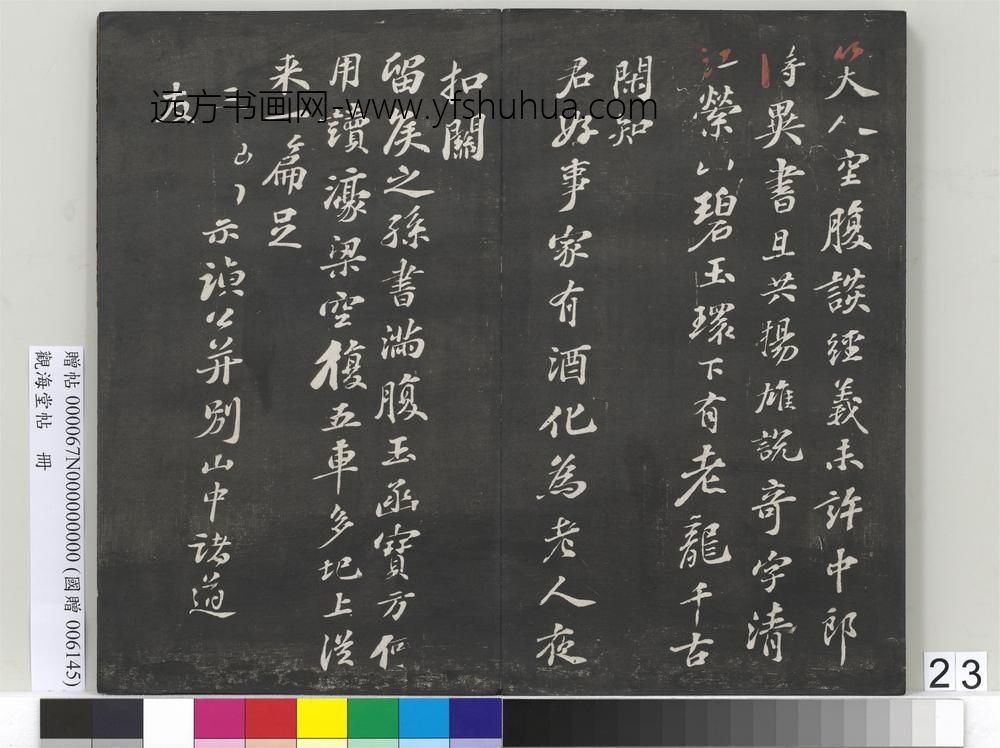 笑人空腹談經義未許中郎
得異書且共揚雄說奇字清
江縈山碧玉環下有老龍千古
閑知
君好事家有酒化為老人夜
扣關
留侯之孫書滿腹玉函寶方何
用讀濠梁空復五車多圯上從
来一篇足
示禎公并別山中諸道
友
远方书画网-www.yfshuhua.com
贈帖 000067N000000000 (國贈 006145)
觀海堂帖 冊
23